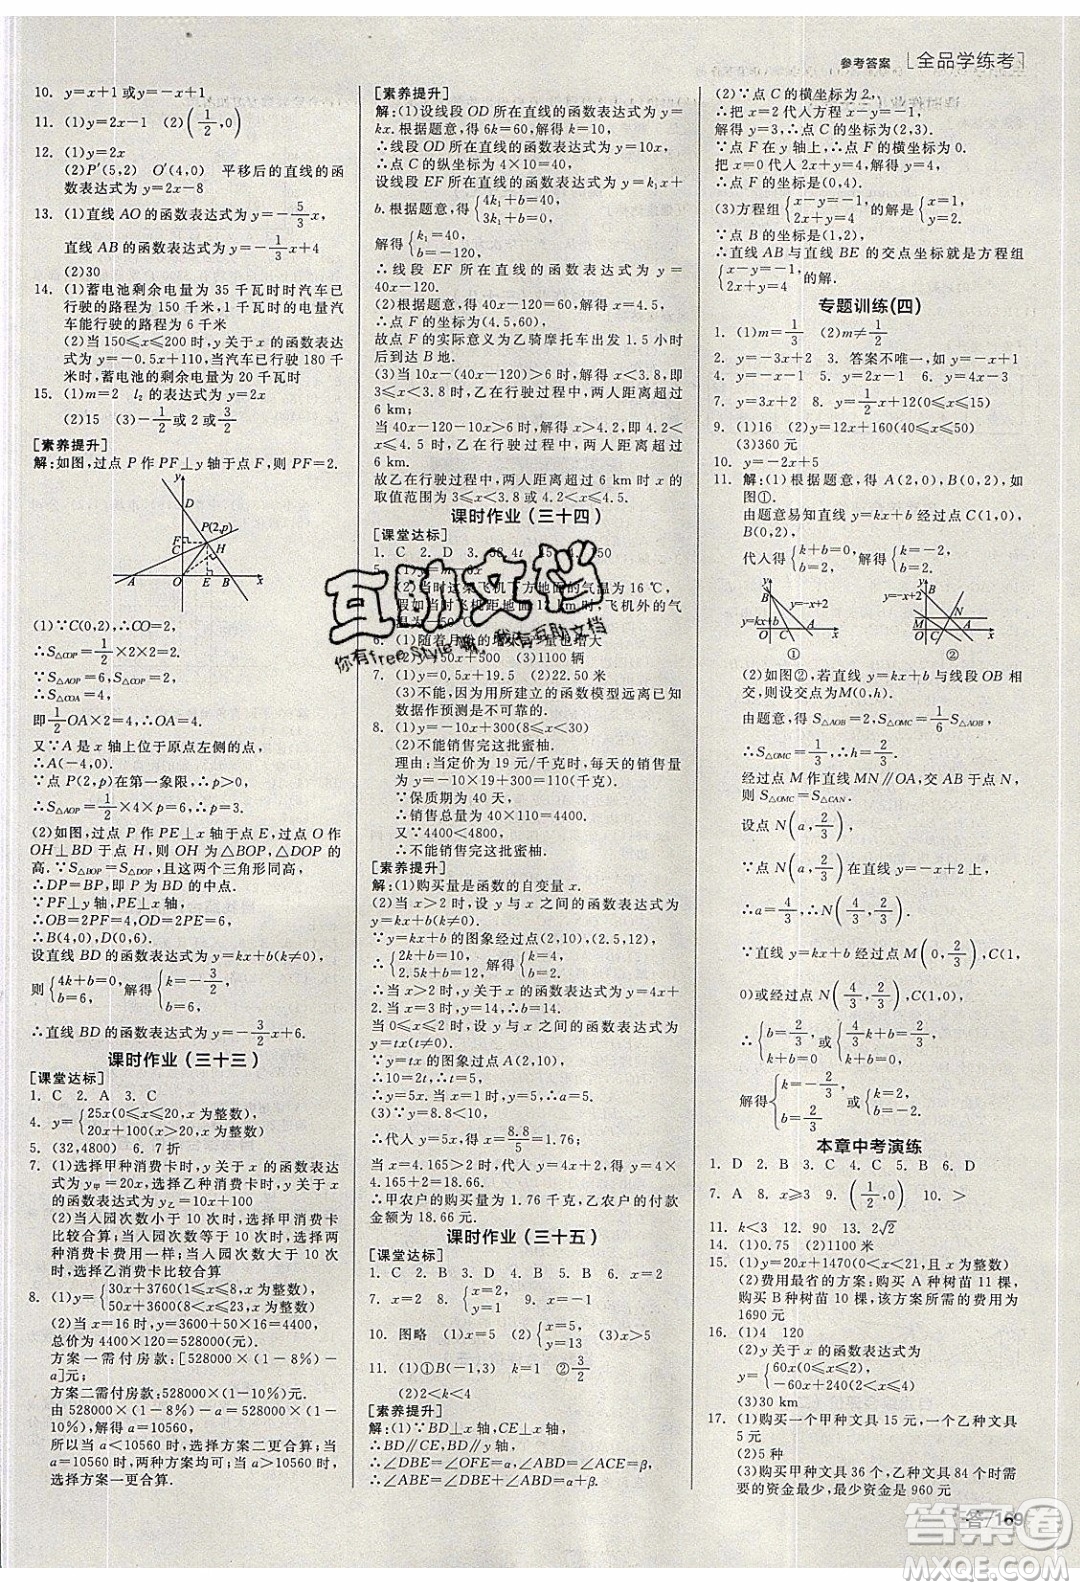 参考答案 [全品学练考]
10. y=x+1或y=-x+1
11. (1)y=2x-1 (2)(1/2,0)
12. (1)y=2x
(2)P′(5,2) O′(4,0) 平移后的直线的函
数表达式为y=2x-8
13. (1)直线 AO 的函数表达式为 y=-5/3x,
直线 AB 的函数表达式为 y=-1/3x+4
(2)30
14. (1)蓄电池剩余电量为 35 千瓦时时汽车已
行驶的路程为 150 千米,1千瓦时的电量汽
车能行驶的路程为 6 千米
(2)当150≤x≤200 时,函数表达式为 y=
-0.5x+110,当汽车已行驶 180 千米
时,蓄电池的剩余电量为 20 千瓦时
15. (1)m=2 l₂的表达式为y=2x
(2)15 (3)-1/2或2或3/2
[素养提升]
解:如图,过点 P 作 PF⊥y 轴于点 F,则PF=2.
y D F P(2,p) C H A O E B x
(1)∵C(0,2),∴CO=2.
∴S△COP=1/2×2×2=2.
∵S△AOP=6,S△COP=2,
∴S△COA=4,
即1/2OA×2=4,∴OA=4.
又∵A 是 x 轴上位于原点左侧的点,
∴A(-4,0).
∵点 P(2,p)在第一象限,∴p>0,
∴S△AOP=1/2×4×p=6,∴p=3.
(2)如图,过点 P 作PE⊥x 轴于点 E,过点 O 作
OH⊥BD 于点 H,则 OH 为△BOP,△DOP 的
高.∵S△BOP=S△DOP,且这两个三角形同高,
∴DP=BP,即 P 为 BD 的中点.
∵PF⊥y 轴,PE⊥x轴,
∴OB=2PF=4,OD=2PE=6,
∴B(4,0),D(0,6).
设直线 BD 的函数表达式为y=kx+b(k≠0),
则{4k+b=0, b=6, 解得{k=-3/2, b=6,
∴直线 BD 的函数表达式为 y=-3/2x+6.
课时作业(三十三)
[课堂达标]
1. C 2. A 3. C
4. y={25x(0≤x≤20,x为整数), 20x+100(x>20,x为整数)
5. (32,4800) 6. 7折
7. (1)选择甲种消费卡时,y 与 x 的函数表达
式为y甲=20x,选择乙种消费卡时,y 与 x
的函数表达式为y乙=10x+100
(2)当入园次数小于 10 次时,选择甲消费卡
比较合算;当入园次数等于 10 次时,选择
两种消费卡费用一样;当入园次数大于 10 次
时,选择乙消费卡比较合算
8. (1)y={30x+3760(1≤x≤8,x为整数), 50x+3600(9≤x≤23,x为整数)
(2)当 x=16 时,y=3600+50x=4400,
总价为 4400×120=528000(元).
方案一需付房款:[528000(1-8%)-
a]元;
方案二需付房款:528000(1-10%)元.
由 528000×(1-8%)-a=528000×(1-
10%),解得 a=10560.
所以当 a<10560 时,方案二更合算;当 a=
10560 时,两种方案均可;当 a>10560 时,选
择方案一更合算.
[素养提升]
解:(1)设线段 OD 所在直线的函数表达式为y=
kx.根据题意,得6k=60,解得k=10,
∴线段 OD 所在直线的函数表达式为y=10x,
∴点 C 的纵坐标为 4×10=40.
设线段 EF 所在直线的函数表达式为 y=k₁x+
b.根据题意,得{4k₁+b=40, 3k₁+b=0,
解得{k₁=40, b=-120,
∴线段 EF 所在直线的函数表达式为 y=
40x-120.
(2)根据题意,得40x-120=60,解得x=4.5,
∴点 F 的坐标为(4.5,60),
故点 F 的实际意义为乙骑摩托车出发 1.5 小时
后到达 B 地.
(3)当 10x-(40x-120)>6 时,解得x<3.8,
此时 3≤x<3.8,乙在行驶过程中,两人距离超过
6 km;
当40x-120-10x>6时,解得x>4.2,此时4.2<
x≤4.5,乙在行驶过程中,两人距离超过
6 km.
故乙在行驶过程中,两人距离超过 6 km 时 x 的
取值范围为 3≤x<3.8 或 4.2<x≤4.5.
课时作业(三十四)
[课堂达标]
1. C 2. D
(2)当时这架飞机下方地面的气温为 16 ℃,
假如当时飞机距离地面 12 km,飞机外的气
6. (1)随着月份的增大,产量也增大
(2)y=50x+450 (3)1100 辆
7. (1)y=0.5x+19.5 (2)22.50 米
(3)不能,因为所建立的函数模型远离已知
数据作预测是不可靠的.
8. (1)y=-10x+300(8≤x<30)
(2)不能销售完这批蜜柚.
理由:当定价为 19 元/千克时,每天的销量
为y=-10×19+300=110(千克).
∵保质期为 40 天,
∴销售总量为 40×110=4400.
又∵4400<4800,
∴不能销售完这批蜜柚.
[素养提升]
解:(1)购买量是函数的自变量 x.
(2)当 x>2 时,设 y 关于 x 的函数表达式为
y=kx+b(k≠0).
∵y=kx+b 的图象经过点(2,10),(2.5,12),
∴{2k+b=10, 2.5k+b=12, 解得{k=4, b=2,
∴当x>2时,y关于 x 的函数表达式为 y=4x+
2.当x=3时,y=14,∴b=14.
当0≤x≤2时,设 y 关于 x 的函数表达式为
y=tx(t≠0).
∵y=tx 的图象过点 A(2,10),
∴10=2t,∴t=5,
∴y=5x.当x=1时,y=5,∴a=5.
(3)∵y=8.8<10,
∴代入y=5x,得x=8.8/5=1.76;
当 x=4.165>2 时,代入 y=4x+2,得 y=4×
4.165+2=18.66.
答:甲农户的购买量为 1.76 千克,乙农户的付款
金额为 18.66 元.
课时作业(三十五)
[课堂达标]
1. C 2. B 3. B 4. C 5. B 6. x=2
7. x=2 8. {x=2, y=1 9. x=-1
10. 图略 (1)x=5 (2){x=5, y=13 (3)x>5
11. (1)①B(-1,3) k=1 ②3/2
(2)2<k<4
[素养提升]
解:(1)∵BD⊥x 轴,CE⊥x 轴,
∴BD∥CE∥y 轴,
∴∠DBE=∠OFE=α,∠ABD=∠ACE=β,
∴∠ABE=∠DBE+∠ABD=α+β.
(2)∵点 C 的横坐标为 2,
∴把 x=2 代入方程 x-y=-1,
解得 y=3,∴点 C 的坐标为(2,3).
把 x=0 代入 2x+y=4,解得 y=4,
∴点 B 的坐标是(0,4).
(3)方程组{x-y=-1, 2x+y=4的解是{x=1, y=2.
∵点 B 的坐标为(1,2),
∴直线 AB 与直线 BE 的交点坐标就是方程组
{x-y=-1, 2x+y=4的解.
专题训练(四)
1. (1)m=1/3 (2)m≠1/3
2. y=-3x+2 3. 答案不唯一,如y=-x
4. y=-x+1 5. y=4x 6. y=-4x
7. y=3x+2 8. y=1/2x+6(0≤x≤15)
9. (1)16 (2)y=12x+160(40≤x≤60)
(3)360 元
10. y=-2x+5
11. 解:(1)根据题意,得 A(2,0),B(0,2),如
图①.
由题意易知直线 y=kx+b 过点 C(1,0),
B(0,2),
代入得{k+b=0, b=2, 解得{k=-2, b=2.
y B O C A x y=-x+2 ①
y B M N O C A x y=-x+2 ②
(2)如图②,若直线 y=kx+b 与线段 OB 相
交,则设交点为M(0,h).
由题意,得 S△AOB=2,S△OMC=1/6S△AOB,
∴S△OMC=1/3,∴h=2/3.
经过点 M 作直线 MN∥OA,交AB 于点 N,
则 S△OMC=S△CAN.
设点 N(a,2/3),
∵点 N(a,2/3)在直线 y=-x+2 上,
∴a=4/3,∴N(4/3,2/3).
∵直线 y=kx+b 经过点 M(0,2/3),C(1,
0)或经过点 N(4/3,2/3),C(1,0),
∴{b=2/3, k+b=0或{4/3k+b=2/3, k+b=0,
解得{k=-2/3, b=2/3或{k=2, b=-2.
本章中考演练
1. D 2. B 3. A 4. C 5. B 6. D
7. A 8. x≥3 9. (1/2,0) 10. >
11. k<3 12. 90 13. 2√2
14. (1)0.75 (2)1100 米
15. (1)y=20x+1470(0<x<21且 x 为整数)
(2)费用最省的方案:购买 A 种树苗 11 棵,
购买 B 种树苗 10 棵,该方案所需费用为
1690 元
16. (1)4 120
(2)y 关于 x 的函数表达式为
(3)30 km
17. (1)购买一个甲种文具 15 元,一个乙种文具
5元
(2)5 种
(3)购买甲种文具 36 个,乙种文具 84 个时
需要的资金最少,最少资金是 960 元
互助文档
你有free Style嘛,我有互助文档
答案卷
MXQE.COM
答/169